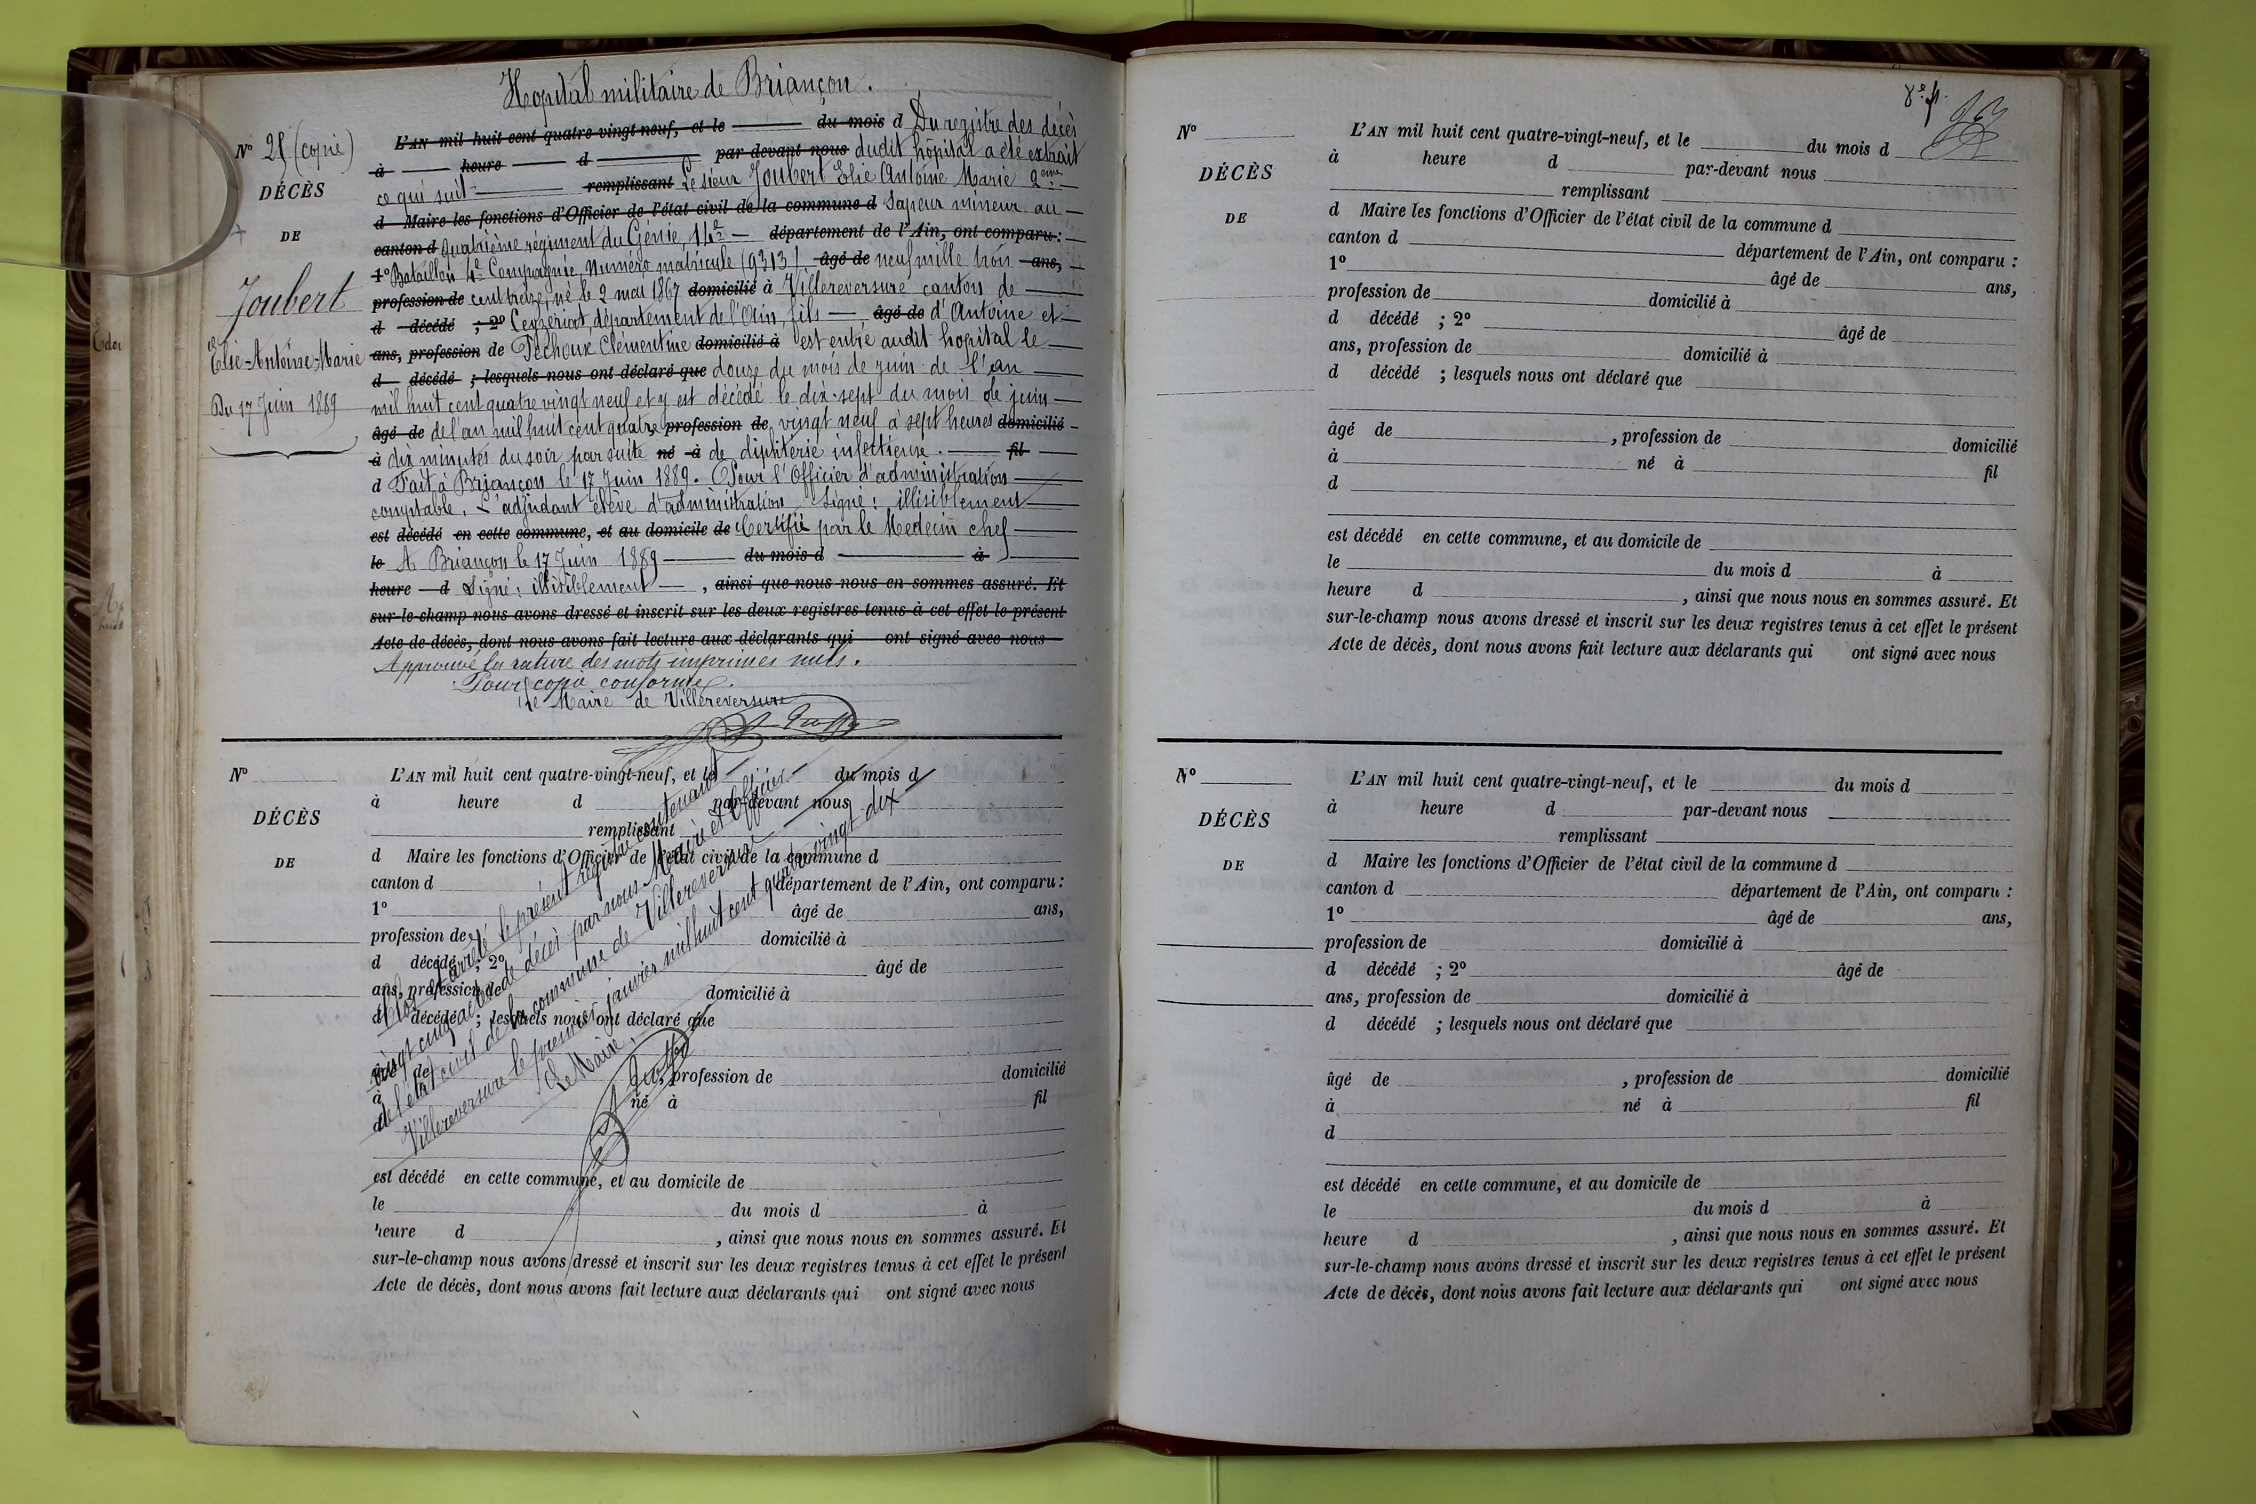 Hopital militaire de Briançon.
N° 25 (copie)
DÉCÈS
DE
Joubert
Elie-Antoine-Marie
Du 17 Juin 1889
L'AN mil huit cent quatre-vingt-neuf, et le du mois d Du registre des décès
à heure d par-devant nous dudit hôpital a été extrait
ce qui suit remplissant Le sieur Joubert Elie Antoine Marie 2eme
d Maire les fonctions d'Officier de l'état civil de la commune d Sapeur mineur au
canton d Quatrième régiment du Génie, 14e département de l'Ain, ont comparu :
1° Bataillon 4e Compagnie, Numéro matricule (9313) âgé de neuf mille trois ans,
profession de cent treize, né le 2 mai 1867 domicilié à Villereversure canton de
d décédé ; 2° Ceyzériat, département de l'Ain, fils âgé de d'Antoine et
ans, profession de Pechoux Clémentine domicilié à est entré audit hopital le
d décédé ; lesquels nous ont déclaré que douze du mois de juin de l'an
mil huit cent quatre vingt neuf et y est décédé le dix-sept du mois de juin
âgé de de l'an mil huit cent quatre profession de vingt neuf à sept heures domicilié
à dix minutes du soir par suite né à de diphtérie infectieuse. fil
d Fait à Briançon le 17 Juin 1889. Pour l'Officier d'administration
comptable, L'adjudant élève d'administration Signé : illisiblement
est décédé en cette commune, et au domicile de Certifié par le Medecin chef
le A Briançon le 17 Juin 1889 du mois d à
heure d Signé : illisiblement , ainsi que nous nous en sommes assuré. Et
sur-le-champ nous avons dressé et inscrit sur les deux registres tenus à cet effet le présent
Acte de décès, dont nous avons fait lecture aux déclarants qui ont signé avec nous
Approuvé la rature des mots imprimés nuls.
Pour copie conforme
Le Maire de Villereversure
N°
DÉCÈS
DE
L'AN mil huit cent quatre-vingt-neuf, et le du mois d
à heure d par-devant nous
remplissant
d Maire les fonctions d'Officier de l'état civil de la commune d
canton d département de l'Ain, ont comparu :
1° âgé de ans,
profession de domicilié à
d décédé ; 2° âgé de
ans, profession de domicilié à
d décédé ; lesquels nous ont déclaré que
âgé de , profession de domicilié
à né à fil
d
est décédé en cette commune, et au domicile de
le du mois d à
heure d , ainsi que nous nous en sommes assuré. Et
sur-le-champ nous avons dressé et inscrit sur les deux registres tenus à cet effet le présent
Acte de décès, dont nous avons fait lecture aux déclarants qui ont signé avec nous
Clos et arrêté le présent registre contenant
vingt cinq actes de décès par nous Maire et Officier
de l'état civil de la commune de Villereversure
Villereversure le premier janvier mil huit cent quatre vingt dix
Le Maire,
N°
DÉCÈS
DE
L'AN mil huit cent quatre-vingt-neuf, et le du mois d
à heure d par-devant nous
remplissant
d Maire les fonctions d'Officier de l'état civil de la commune d
canton d département de l'Ain, ont comparu :
1° âgé de ans,
profession de domicilié à
d décédé ; 2° âgé de
ans, profession de domicilié à
d décédé ; lesquels nous ont déclaré que
âgé de , profession de domicilié
à né à fil
d
est décédé en cette commune, et au domicile de
le du mois d à
heure d , ainsi que nous nous en sommes assuré. Et
sur-le-champ nous avons dressé et inscrit sur les deux registres tenus à cet effet le présent
Acte de décès, dont nous avons fait lecture aux déclarants qui ont signé avec nous
N°
DÉCÈS
DE
L'AN mil huit cent quatre-vingt-neuf, et le du mois d
à heure d par-devant nous
remplissant
d Maire les fonctions d'Officier de l'état civil de la commune d
canton d département de l'Ain, ont comparu :
1° âgé de ans,
profession de domicilié à
d décédé ; 2° âgé de
ans, profession de domicilié à
d décédé ; lesquels nous ont déclaré que
âgé de , profession de domicilié
à né à fil
d
est décédé en cette commune, et au domicile de
le du mois d à
heure d , ainsi que nous nous en sommes assuré. Et
sur-le-champ nous avons dressé et inscrit sur les deux registres tenus à cet effet le présent
Acte de décès, dont nous avons fait lecture aux déclarants qui ont signé avec nous